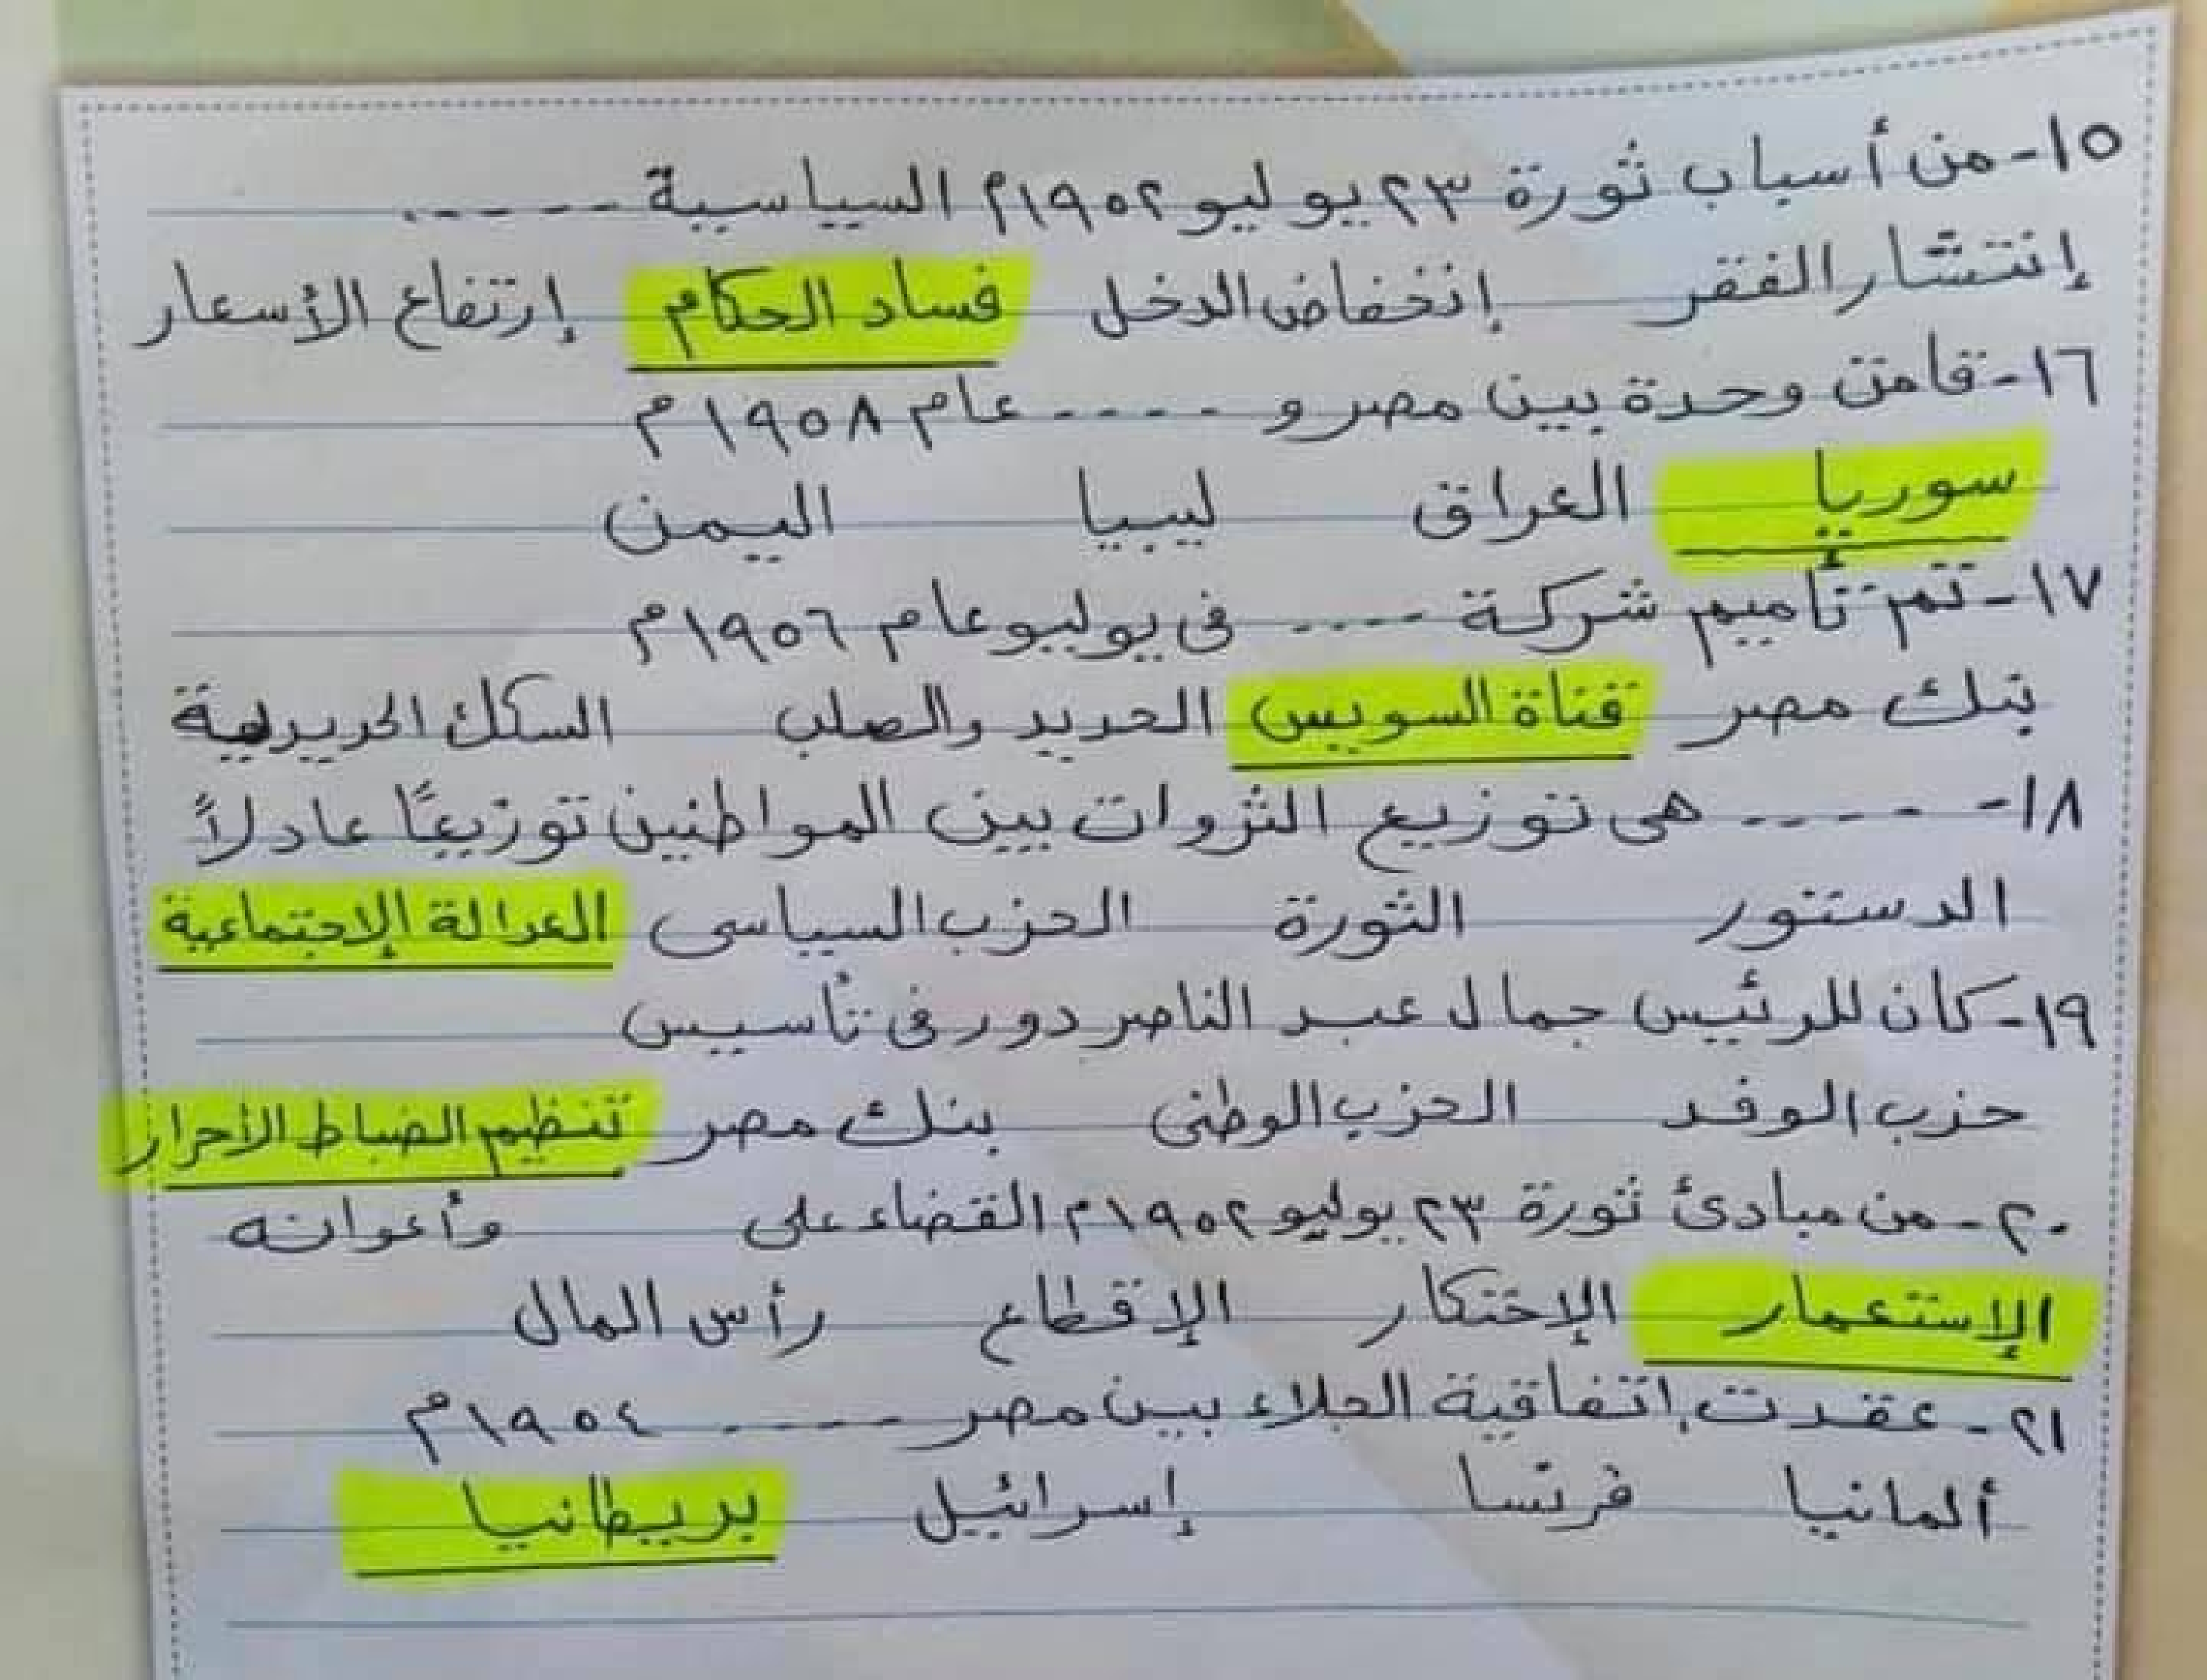 ١٥-من أسباب ثورة ٢٣ يوليو ١٩٥٢م السياسية -----.
إنتشار الفقر إنخفاض الدخل فساد الحكام إرتفاع الأسعار
١٦-قامت وحدة بين مصر و ---- عام ١٩٥٨م
سوريا العراق ليبيا اليمن
١٧-تم تأميم شركة ---- فى يوليو عام ١٩٥٦م
بنك مصر قناة السويس الحديد والصلب السكك الحديدية
١٨- ----- هى توزيع الثروات بين المواطنين توزيعًا عادلاً
الدستور الثورة الحزب السياسى العدالة الإجتماعية
١٩-كان للرئيس جمال عبد الناصر دور فى تأسيس
حزب الوفد الحزب الوطنى بنك مصر تنظيم الضباط الأحرار
٢٠-من مبادئ ثورة ٢٣ يوليو ١٩٥٢م القضاء على وأعوانه
الإستعمار الإحتكار الإقطاع رأس المال
٢١-عقدت إتفاقية الجلاء بين مصر ----- ١٩٥٤م
ألمانيا فرنسا إسرائيل بريطانيا